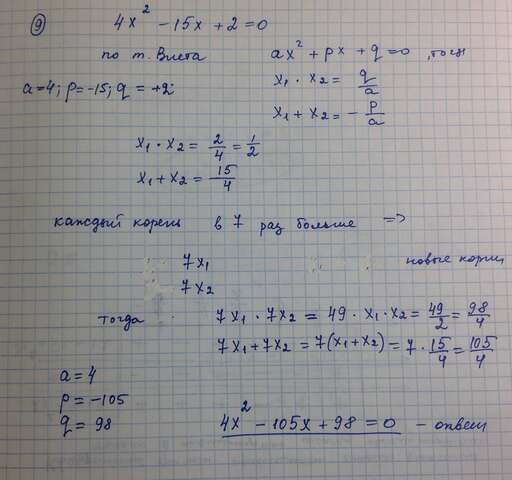 ⑨ 4x² - 15x + 2 = 0
по т. Виета ax² + px + q = 0, тогда
a = 4; p = -15; q = +2
x₁ · x₂ = q/a
x₁ + x₂ = - p/a
x₁ · x₂ = 2/4 = 1/2
x₁ + x₂ = 15/4
каждый корень в 7 раз больше =>
7x₁ новые корни
7x₂
тогда 7x₁ · 7x₂ = 49 · x₁ · x₂ = 49/2 = 98/4
7x₁ + 7x₂ = 7(x₁ + x₂) = 7 · 15/4 = 105/4
a = 4
p = -105
q = 98
4x² - 105x + 98 = 0 - ответ